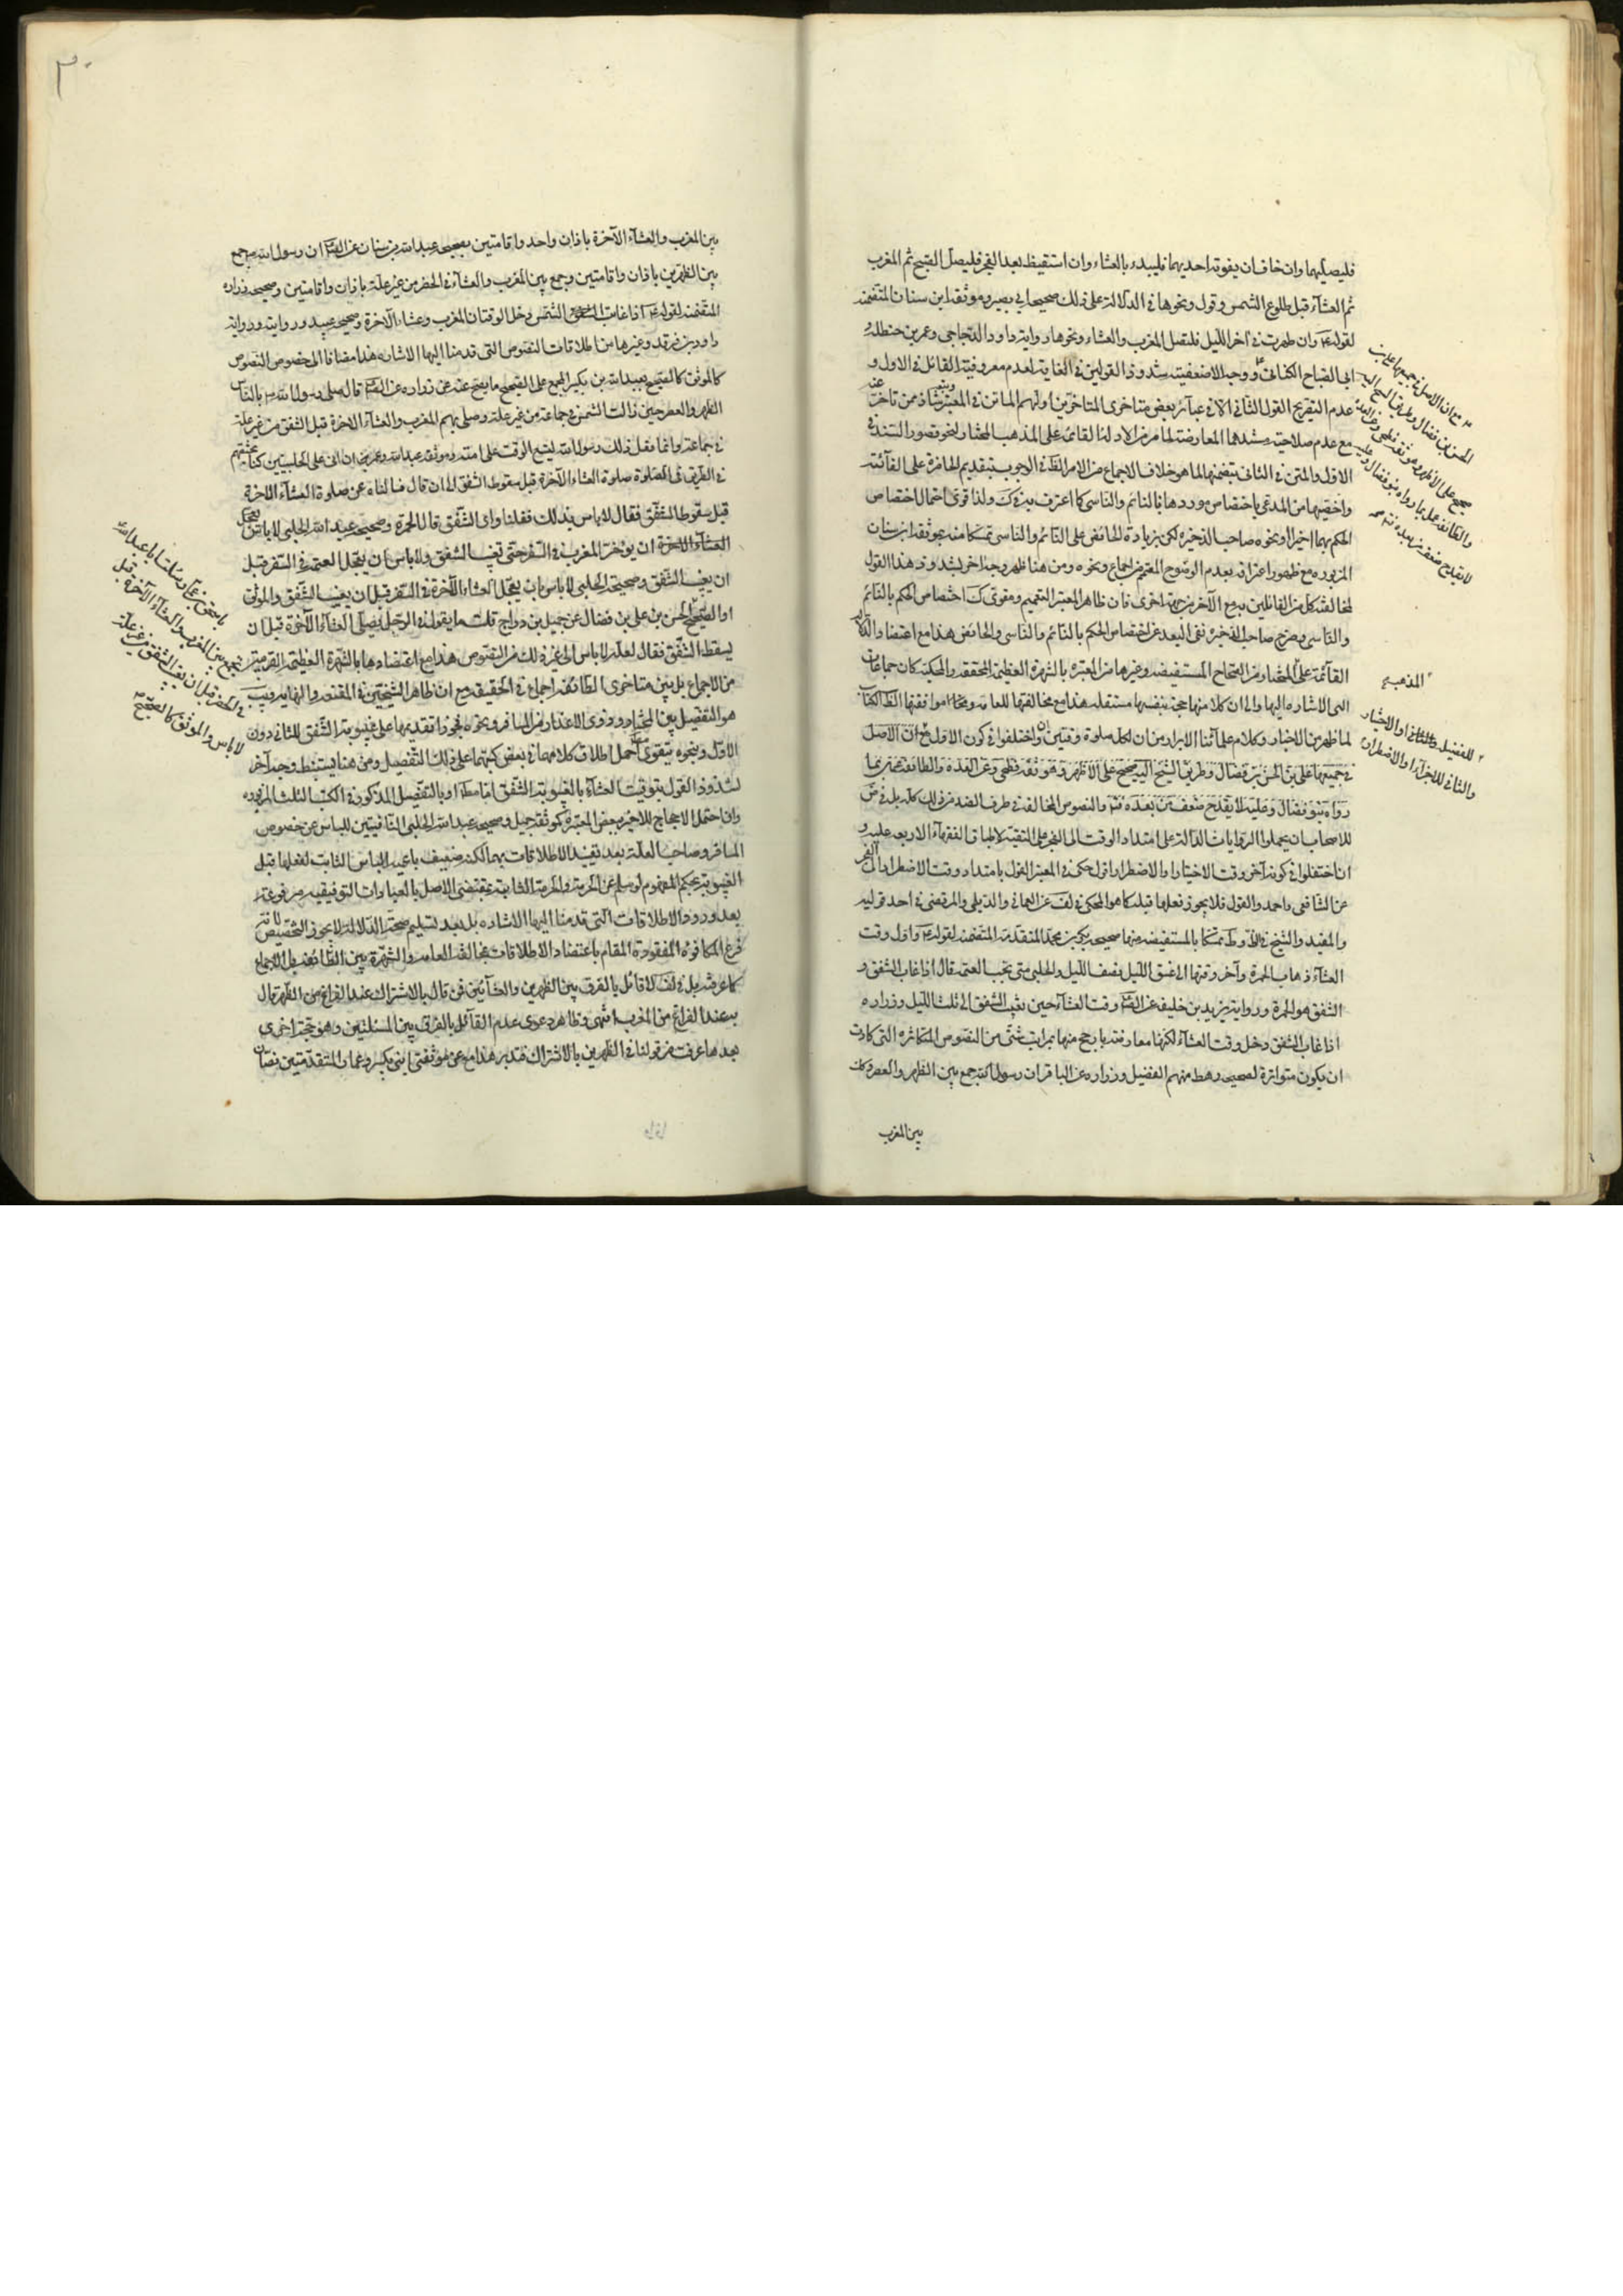 فليصليهما وان خاف ان يفوته احديهما فليبدء بالعشاء وان استيقظ بعد الفجر فليصل الصبح ثم المغرب
ثم العشآء قبل طلوع الشمس وقول ونحوها في الدلالة على ذلك صحيحا ابي بصير وموثقة ابن سنان المتضمنة
لقوله وان طهرت في اخر الليل فلتصل المغرب والعشاء ونحوها رواية داود الدجاجي وعمر بن حنظلة و
ابي الصباح الكناني ووجه الاضعفية شذوذ القولين في الغاية لعدم معروفية القائل في الاول و
عدم التصريح القول الثاني الا في عبائر بعض متاخري المتاخرين اولهم الماتن في المعتبر وشاذ ممن تاخر عنه
مع عدم صلاحية سندها المعارضة لما مر من الادلة القائمة على المذهب المختار لنحو قصور السند في
الاول والمتن في الثاني بتضمنها لما هو خلاف الاجماع من الامر الظ في الوجوب بتقديم الحاضرة على الفائتة
واخصيتهما من المدعى باختصاص موردها بالنائم والناسي كما اعترف به في ك ولذا قوى احتمال اختصاص
الحكم بهما اخيرا ونحوه صاحب الذخيرة لكن بزيادة الحائض على النائم والناسي تمسكا منه بموثقة ابن سنان
المزبورة مع ظهور اعترافه بعدم الوضوح المعتم من اجماع ونحوه ومن هنا ظهر وجه اخر لشذوذ هذا القول
لمخالفته كل من القائلين به مع الآخر من جهة اخرى فان ظاهر المعتبر التعميم ومقوى ك اختصاص الحكم بالنائم
والناسي وصريح صاحب الذخيرة نفى البعد عن اختصاص الحكم بالنائم والناسي والحائض هذا مع اعتضاد الادلة
القآئمة على المختار من الصحاح المستفيضة وغيرها من المعتبرة بالشهرة العظيمة المحققة والمحكية كان جماعات
التي الاشارة اليها والى ان كلا منها حجة بنفسها مستقلة هذا مع مخالفتها للعامة ومخالفها موافقتها الظ الكتاب
لما ظهر من الاخبار وكلام علمائنا الابرار من ان لكل صلوة وقتين واختلفوا في كون الاول مع ان الاصل
في جميعها علي بن الحسن بن فضال وطريق الشيخ اليه صحيح على الاظهر وهو ثقة فطحي وعن العدة والطائفة عملت بما
رواه بنو فضال وعليه لا يقدح ضعف من بعده ثم والنصوص المخالفة في طرف الضد من ذلك كله بل في ض
للاصحاب ان يحملوا الروايات الدالة على امتداد الوقت الى الفجر على التقية لاطباق الفقهاء الاربعة عليه و
ان اختلفوا في كونه آخر وقت الاختيار او الاضطرار اقول حكى في المعتبر القول بامتداد وقت الاضطرار الى الفجر
عن الشافعي واحمد والقول فلا يجوز فعلها قبله كما هو المحكي في لف عن العماني والديلمي والمرتضى في احد قوليه
والمفيد والشيخ في ية وط تمسكا بالمستفيضة منها صحيحة بكر بن محمد المتقدمة المتضمنة لقوله واول وقت
العشآء ذهاب الحمرة وآخر وقتها الى غسق الليل نصف الليل والحلبي متى تجب العتمة قال اذا غاب الشفق و
الشفق هو الحمرة ورواية يزيد بن خليفة عن الص وقت العشآء حين يغيب الشفق الى ثلث الليل وزرارة
اذا غاب الشفق دخل وقت العشآء لكنها معارضة بارجح منها بمراتب شتى من النصوص المتكاثرة التي كادت
ان يكون متواترة لصحيحة رهط منهم الفضيل وزرارة عن الباقر ان رسول الله جمع بين الظهر والعصر وكذا
بين المغرب
مع ان الاصل في جميعها علي بن
الحسن بن فضال وطريق الشيخ اليه
صحيح على الاظهر وهو ثقة فطحي وعن العدة
والطائفة عملت بما رواه بنو فضال وعليه
لا يقدح ضعف من بعده ثم
المذهب
للفضيلة والثاني او الاختيار
والثاني للاجزآء او الاضطرار
٣٠
بين المغرب والعشآء الآخرة باذان واحد واقامتين بصحيحة عبد الله بن سنان عن الص ان رسول الله جمع
بين الظهرين باذان واقامتين وجمع بين المغرب والعشآء في الحضر من غير علة باذان واقامتين وصحيحة زرارة
المتضمنة لقوله اذا غابت الشمس دخل الوقتان المغرب وعشاء الآخرة وصحيحة عبيد ورواية ورواية
داود بن فرقد وغيرها من اطلاقات النصوص التي قدمنا اليها الاشارة هذا مضافا الى خصوص النصوص
كالموثق كالصحيح بعبد الله بن بكير المجمع على تصحيح ما يصح عنه عن زرارة عن الص قال صلى رسول الله بالناس
الظهر والعصر حين زالت الشمس في جماعة من غير علة وصلى بهم المغرب والعشآء الآخرة قبل الشفق من غير علة
في جماعة وانما فعل ذلك رسول الله ليتسع الوقت على امته وموثقة عبد الله وعمران ابني علي الحلبيين كنا نختصم
في الطريق في الصلوة صلوة العشاء الآخرة قبل سقوط الشفق الى ان قال فسالناه عن صلوة العشآء الآخرة
قبل سقوط الشفق فقال لا باس بذلك فقلنا واي الشفق قال الحمرة وصحيحة عبيد الله الحلبي لا باس ان
يؤخر المغرب في السفر حتى تغيب الشفق ولا باس ان يعجل العتمة في السفر قبل
ان يغيب الشفق وصحيحة الحلبي لا باس بان يعجل العشاء الآخرة في السفر قبل ان يغيب الشفق والموثق
او الصحيح الحسن بن علي بن فضال عن جميل بن دراج قلت ما يقول في الرجل يصلي العشآء الآخرة قبل ان
يسقط الشفق فقال لعلة لا باس الى غير ذلك من النصوص هذا مع اعتضادها بالشهرة العظيمة القريبة
من الاجماع بل بين متاخري الطائفة اجماع في الحقيقة مع ان ظاهر الشيخين في المقنعة والنهاية ويب
هو التفصيل بين المختار وذوي الاعذار من المسافر ونحوه فجوزا تقديمها على غيبوبة الشفق للثاني دون
الاول وبنحوه يتقوى حمل اطلاق كلامهما في بعض كتبهما على ذلك التفصيل ومن هنا يستنبط وجه آخر
لشذوذ القول بتوقيت العشآء بالغيبوبة الشفق اما مط او بالتفصيل المذكور في الكتب الثلث المزبورة
وان احتمل الاحتجاج للاخير ببعض المعتبرة كموثقة جميل وصحيحة عبد الله الحلبي النافيتين للباس عن خصوص
المسافر وصاحب العلة بعد تقييد الاطلاقات بهما لكنه ضعيف باعمية الباس الثابت لفعلها قبل
الغيبوبة بحكم المفهوم لو سلم عن الحرمة والحرمة الثابتة بمقتضى الاصل بالعبادات التوقيفية مرفوعة
بعد ورود الاطلاقات التي قدمنا اليها الاشارة بل بعد تسليم صحة الدلالة لا يجوز التخصيص لانه
فرع المكافوة المفقودة المقام باعتضاد الاطلاقات بمخالفة العامة والشهرة بين الطائفة بل الاجماع
كما عرفته بل في لف لا قائل بالفرق بين الظهرين والعشآئين فمن قال بالاشتراك عند الفراغ من الظهر قال
به عند الفراغ من المغرب انتهى وظاهره دعوى عدم القآئل بالفرق بين المسئلتين وهو حجة اخرى
بعد ما عرفت من قولنا في الظهرين بالاشتراك فتدبر هذا مع عموم موثقتي ابني بكير وعمار المتقدمتين نصان
نجمع بين المغرب والعشآء الآخرة قبل
في الحضر قبل ان يغيب الشفق من غير علة
لا باس والموثق كالصحيح